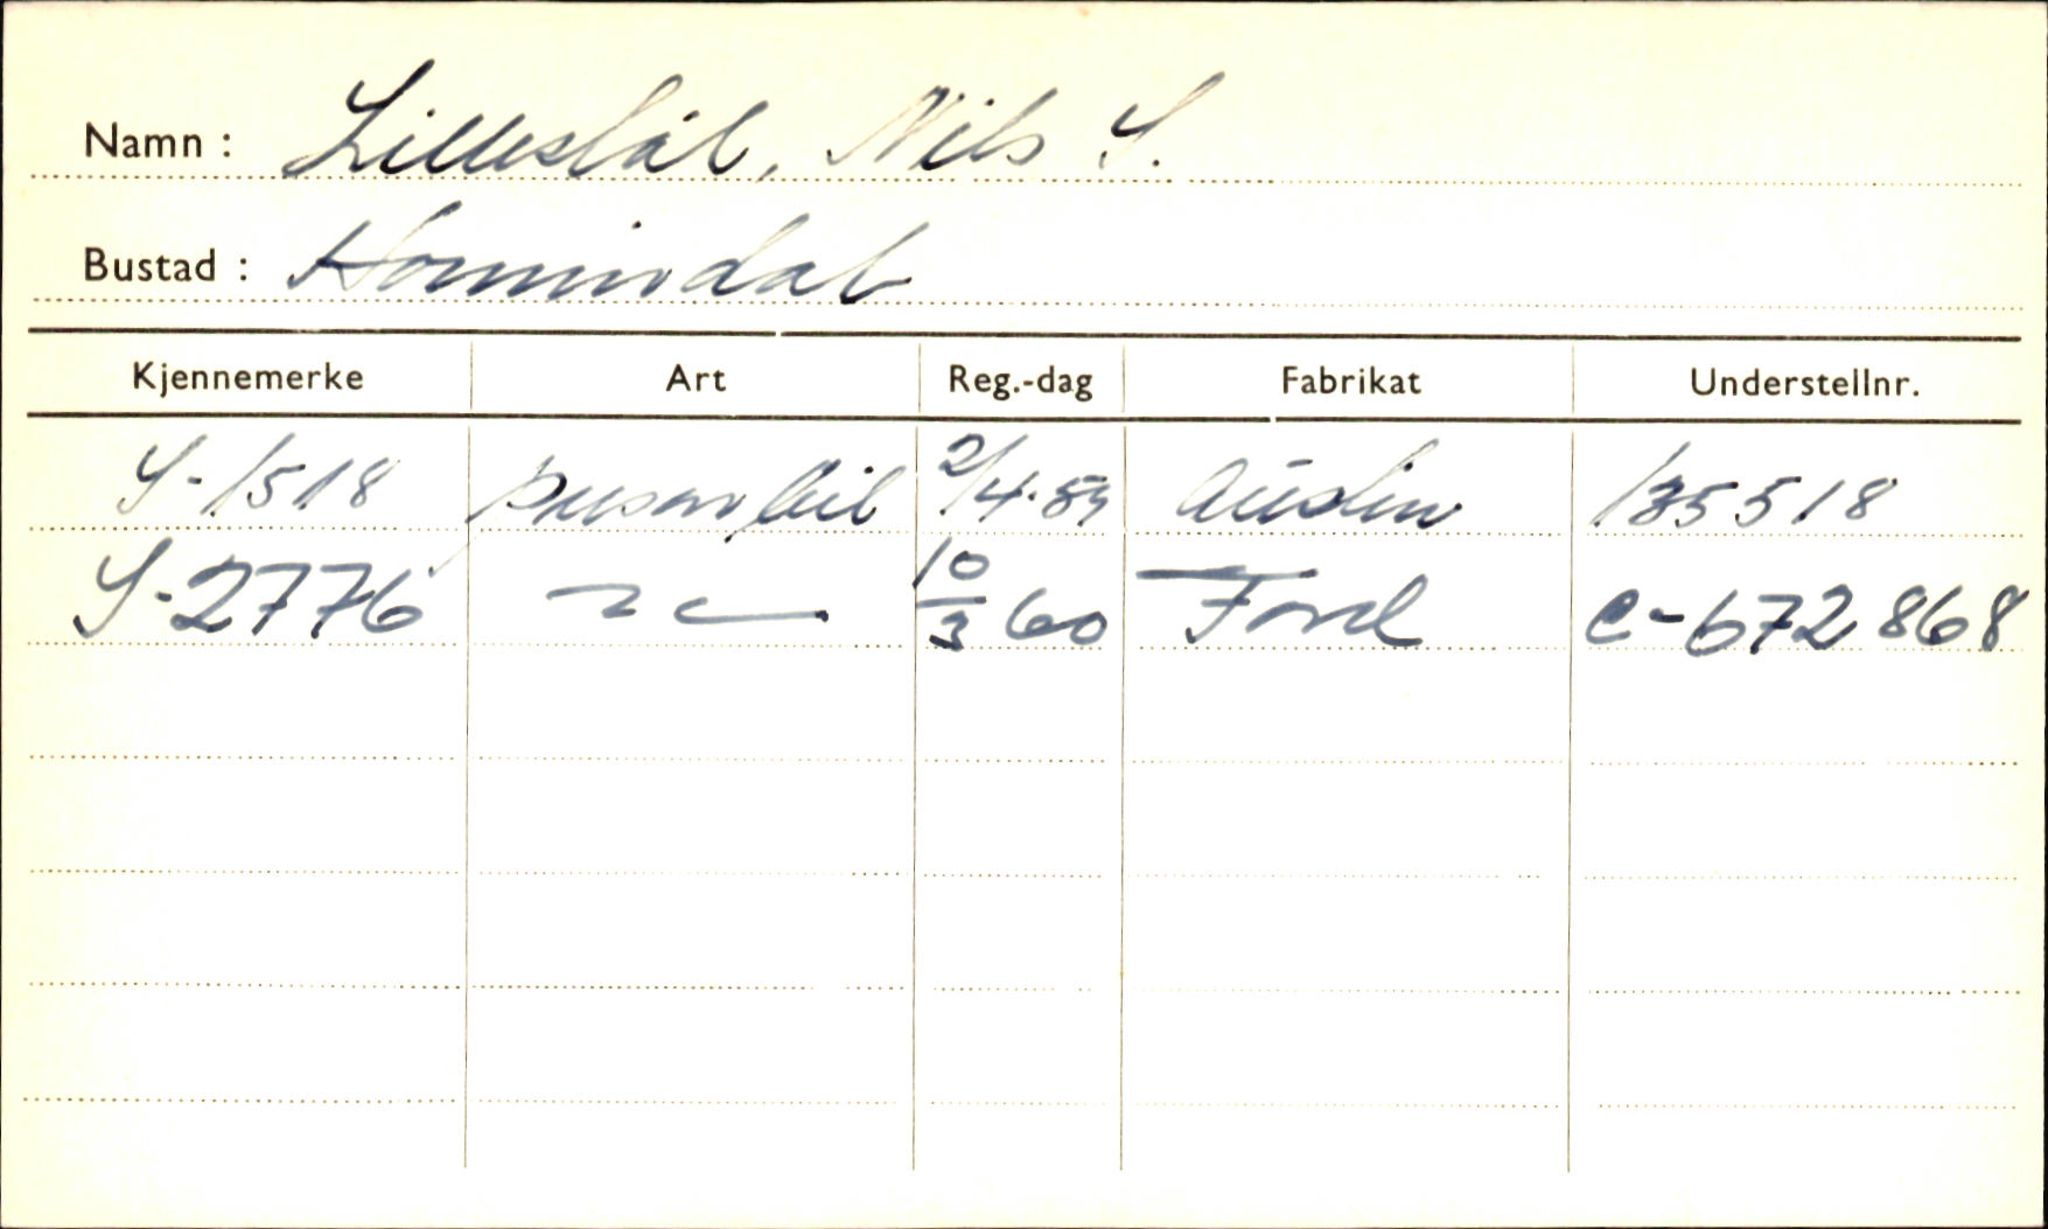 Namn: Lilleslål, Nils S.
Bustad: Hornindal
Kjennemerke Art Reg.-dag Fabrikat Understellnr.
S-1518 personbil 2/4-59 Austin 135518
S-2776 10/3 60 Ford C-672868